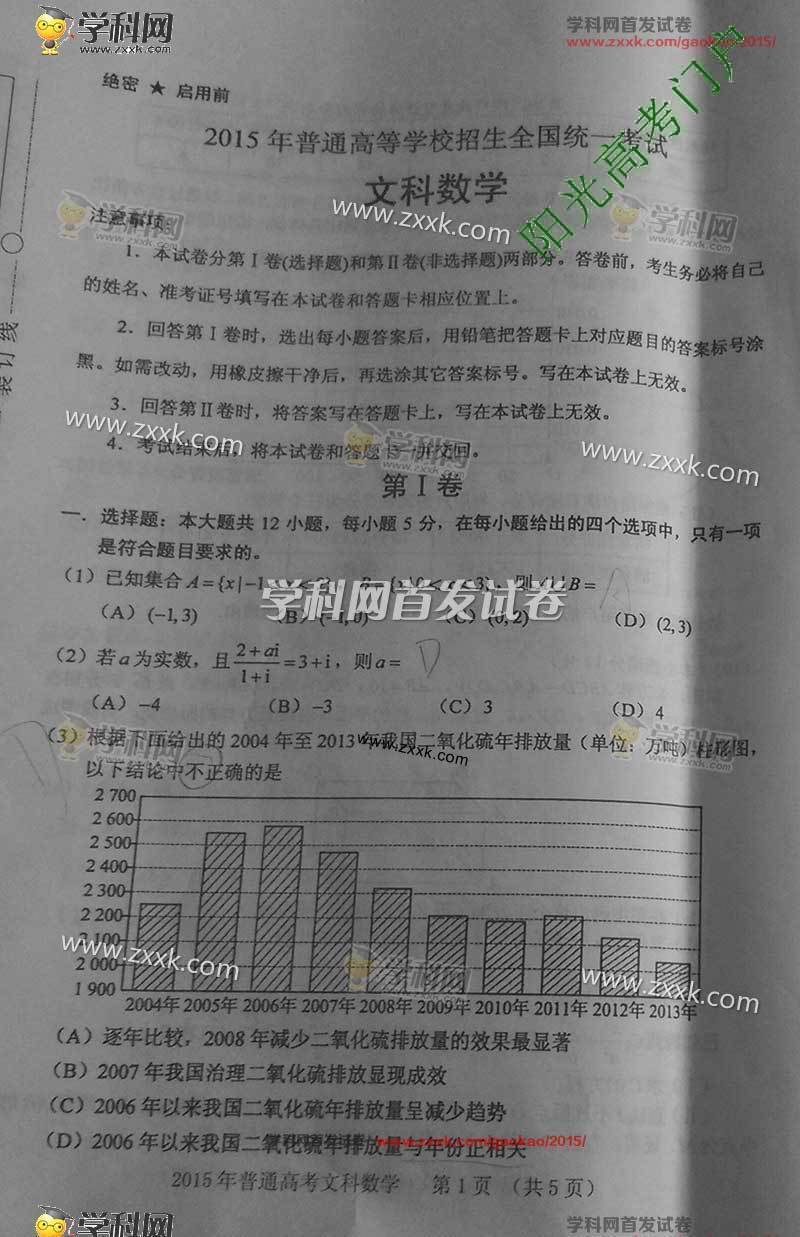 学科网
www.zxxk.com
学科网首发试卷
www.zxxk.com/gaokao/2015/
绝密 ★ 启用前
阳光高考门户
2015 年普通高等学校招生全国统一考试
文科数学
www.zxxk.com
学科网
www.zxxk.com
注意事项:
1. 本试卷分第Ⅰ卷(选择题)和第Ⅱ卷(非选择题)两部分。答卷前,考生务必将自己
的姓名、准考证号填写在本试卷和答题卡相应位置上。
2. 回答第Ⅰ卷时,选出每小题答案后,用铅笔把答题卡上对应题目的答案标号涂
黑。如需改动,用橡皮擦干净后,再选涂其它答案标号。写在本试卷上无效。
3. 回答第Ⅱ卷时,将答案写在答题卡上,写在本试卷上无效。
www.zxxk.com
学科网
www.zxxk.com
4. 考试结束后,将本试卷和答题卡一并交回。
装订线
第Ⅰ卷
一. 选择题:本大题共 12 小题,每小题 5 分,在每小题给出的四个选项中,只有一项
是符合题目要求的。
(1)已知集合 A={x|-1<x<2}, B={x|0<x<3},则A∪B= A
学科网首发试卷
(A) (-1,3) (B) (-1,0) (C) (0,2) (D) (2,3)
(2)若a为实数,且(2+ai)/(1+i)=3+i,则a= D
(A) -4 (B) -3 (C) 3 (D) 4
(3)根据下面给出的 2004 年至 2013 年我国二氧化硫年排放量(单位:万吨)柱形图,
www.zxxk.com
学科网
以下结论中不正确的是
2 700
2 600
2 500
2 400
2 300
2 200
2 100
2 000
1 900
www.zxxk.com
学科网
www.zxxk.com
2004年 2005年 2006年 2007年 2008年 2009年 2010年 2011年 2012年 2013年
(A)逐年比较,2008 年减少二氧化硫排放量的效果最显著
(B)2007 年我国治理二氧化硫排放显现成效
(C)2006 年以来我国二氧化硫年排放量呈减少趋势
(D)2006 年以来我国二氧化硫年排放量与年份正相关
学科网首发试卷 www.zxxk.com/gaokao/2015/
2015 年普通高考文科数学 第 1 页 (共 5 页)
学科网
www.zxxk.com
学科网首发试卷